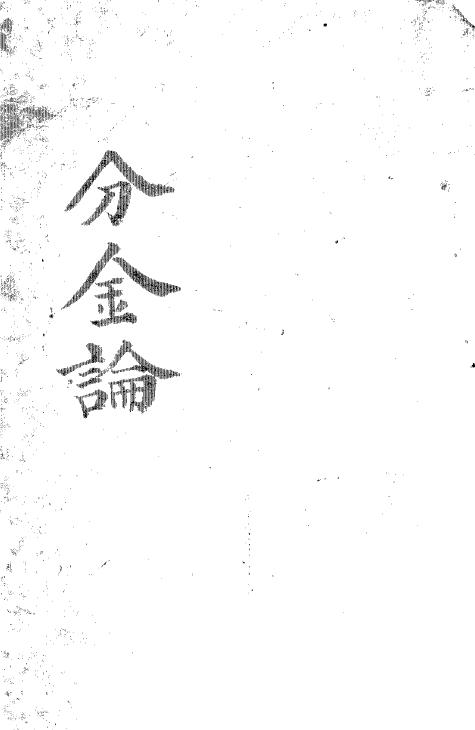 分金論